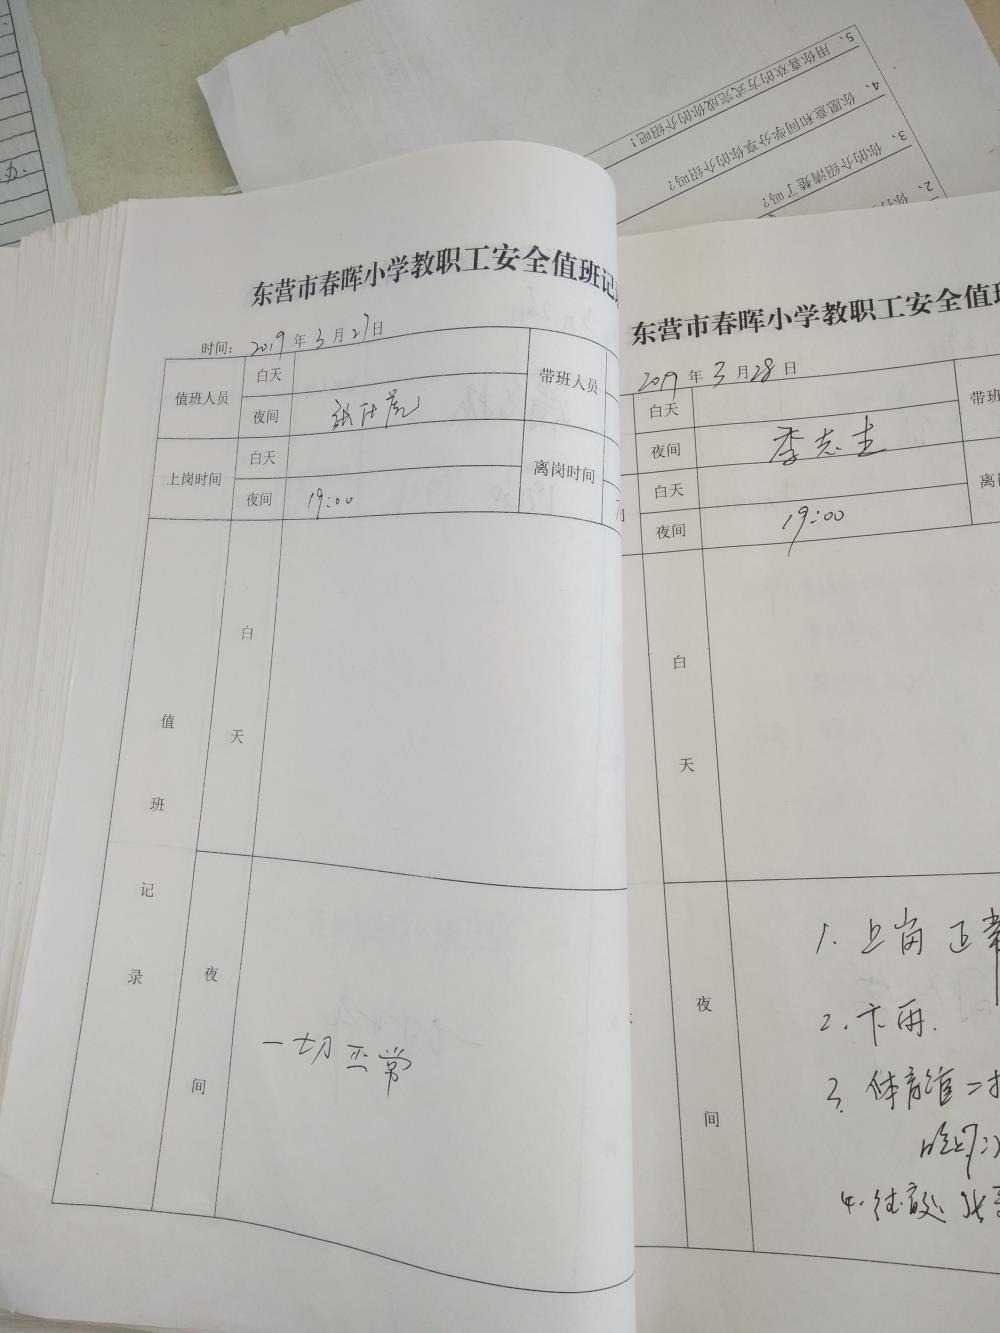 5、用你喜欢的方式完成你的介绍吧！
4、你愿意和同学分享你的介绍吗？
3、你的介绍清楚了吗？
2、
东营市春晖小学教职工安全值班记
时间： 2019 年 3 月 27 日
值班人员 白天 带班人员
夜间
上岗时间 白天 离岗时间
夜间 19:00
值班记录
白天
夜间
一切正常
东营市春晖小学教职工安全值
2019 年 3 月 28 日
白天 带班
夜间 李志生
白天
夜间 19:00
白天
夜间
1. 上岗正常
2.
3. 体育
4.